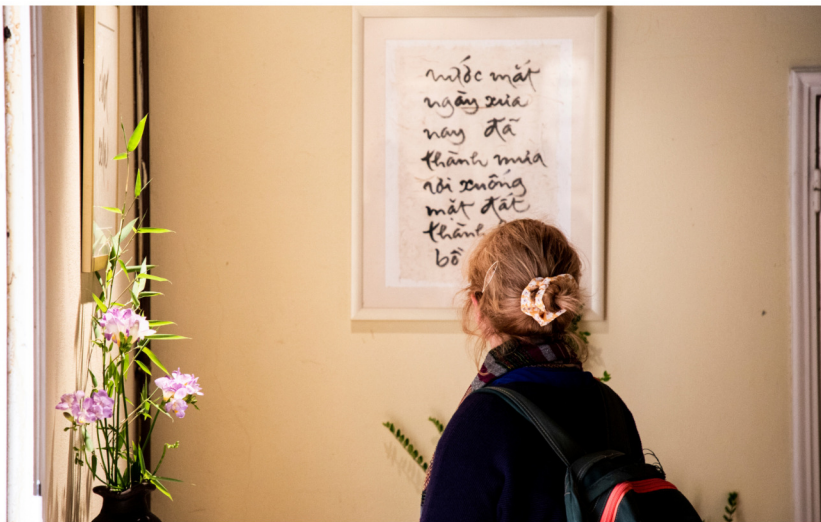 nước mắt
ngày xưa
nay đã
thành mưa
rơi xuống
mặt đất
thành
bồ